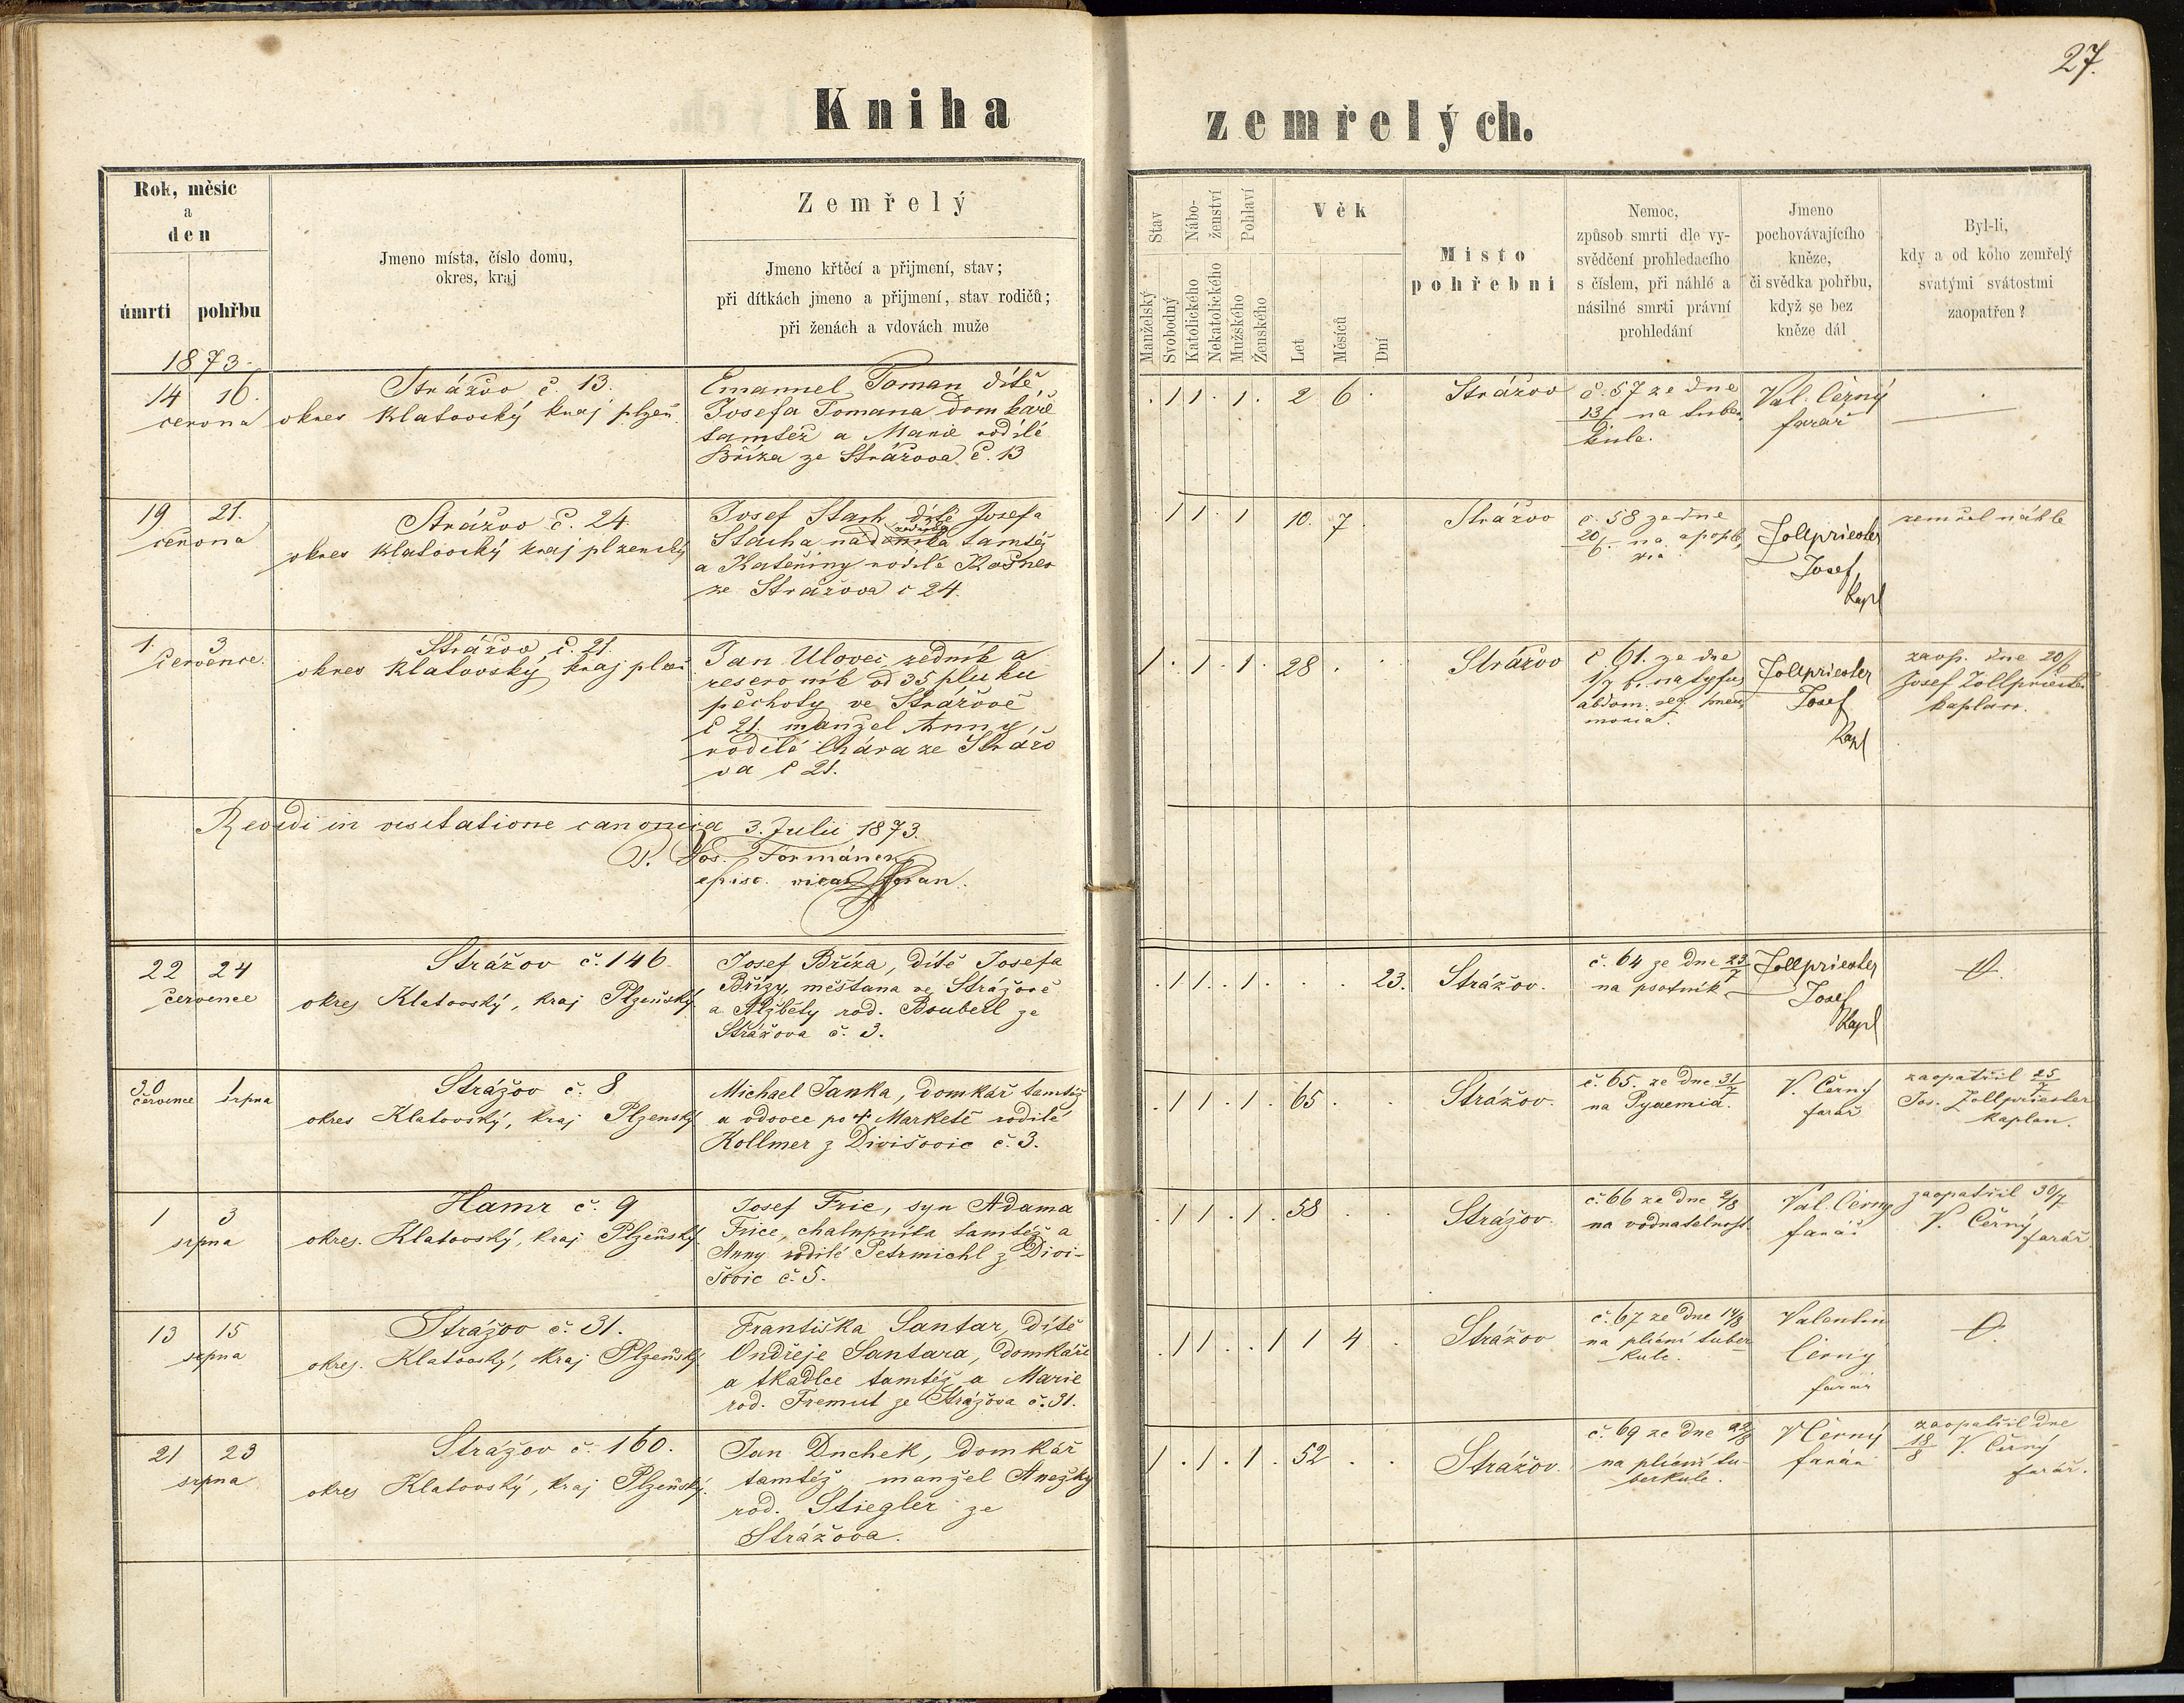 27.
Kniha zemřelých.
Rok, měsíc
a
den
úmrtí pohřbu
Jmeno místa, číslo domu,
okres, kraj
Zemřelý
Jmeno křtěcí a přijmení, stav;
při dítkách jmeno a přijmení, stav rodičů;
při ženách a vdovách muže
Stav
Manželský
Svobodný
Nábo-
ženství
Katolického
Nekatolického
Pohlaví
Mužského
Ženského
Věk
Let
Měsíců
Dní
Místo
pohřební
Nemoc,
způsob smrti dle vy-
svědčení prohledacího
s číslem, při náhlé a
násilné smrti právní
prohledání
Jmeno
pochovávajícího
kněze,
či svědka pohřbu,
když se bez
kněze dál
Byl-li,
kdy a od koho zemřelý
svatými svátostmi
zaopatřen?
1873.
14 16.
června
Strážov č. 13.
okres Klatovský kraj plzeň.
Emanuel Toman dítě,
Josefa Tomana domkáře
tamtéž a Marie rodilé
Bříza ze Strážova č. 13
. 1 1 . 1 . 2 6 .
Strážov
č. 57 ze dne
13/6 na tuber
kule.
Val. Černý
farář
19 21.
června
Strážov č. 24
okres Klatovský kraj plzenský
Josef Stach dítě Josefa
Stacha tamtéž
a Kateřiny rodilé Kašner
ze Strážova č 24.
. 1 1 . 1 10. 7
Strážov
č. 58 ze dne
20/6 na apople
xia
Zollpriester
Josef,
Kapl
zemřel náhle
1. 3
července.
Strážov č. 21.
okres Klatovský kraj plzeň
Jan Ulovec zedník a
reservník od 35 pluku
pěchoty ve Strážově
č 21. manžel Anny,
rodilé Chára ze Strážo
va č 21.
1 . 1 . 1 . 28 . .
Strážov
č 61. ze dne
1/7 na tyfus
abdom. seq. pneu
monia.
Zollpriester
Josef
Kapl
zaop. dne 20/6
Josef Zollpriester
kaplan.
Revidi in visitatione canonica 3. Julii 1873.
P. Jos. Formánek
episc. vicar. foran.
22 24
července
Strážov č. 146
okres Klatovský, kraj Plzeňský
Josef Bříza, dítě Josefa
Břízy, měštana ve Strážově
a Alžběty rod. Bouberl ze
Strážova č. 3.
. 1 1 . . 1 . . . 23.
Strážov.
č. 64 ze dne 23/7
na psotník
Zollpriester
Josef
Kapl
30 1
července srpna
Strážov č. 8
okres Klatovský, kraj Plzenský
Michael Janka, domkář tamtéž
a vdovec po † Marketě rodilé
Kollmer z Divišovic č. 3.
. 1 1 . 1 . 65 . .
Strážov.
č. 65. ze dne 31/7
na Pyaemia.
V. Černý
farář
zaopatřil 25/7
Jos. Zollpriester
Kaplan.
1 3
srpna
Hamr č. 9
okres. Klatovský, kraj Plzeňský
Josef Fric, syn Adama
Frice, chalupníka tamtéž a
Anny rodilé Petrmichl z Divi-
šovic č. 5.
. 1 1 . 1 . 58 . .
Strážov.
č. 66 ze dne 2/8
na vodnatelnost
Val. Černý
farář
zaopatřil 30/7
V. Černý
farář.
13 15
srpna
Stražov č. 31.
okres. Klatovský, kraj Plzeňský
Františka Santar, dítě
Ondřeje Santara, domkáře
a tkadlce tamtéž a Marie
rod. Fremut ze Strážova č. 31.
. 1 1 . . 1 1 4 .
Strážov
č. 67 ze dne 14/8
na plicní tuber
kule.
Valentin
Černý
farář
21 23
srpna
Strážov č. 160.
okres Klatovský, kraj Plzeňský.
Jan Duchek, domkář
tamtéž, manžel Anežky
rod. Stiegler ze
Strážova.
1 . 1 . 1 . 52 . .
Stražov.
č. 69 ze dne 22/8
na plicní tu-
berkule.
V Černý
farář
zaopatřil dne
18/8 V. Černý
farář.